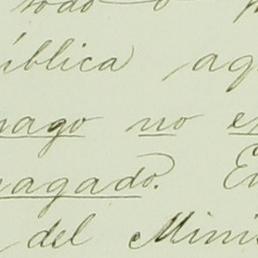 todo o
ública aq
pago no e
pagado. E
del Minis